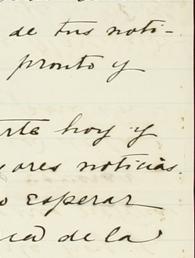 de tus noti-
pronto y
rte hoy y
ores noticias.
o esperar
de la